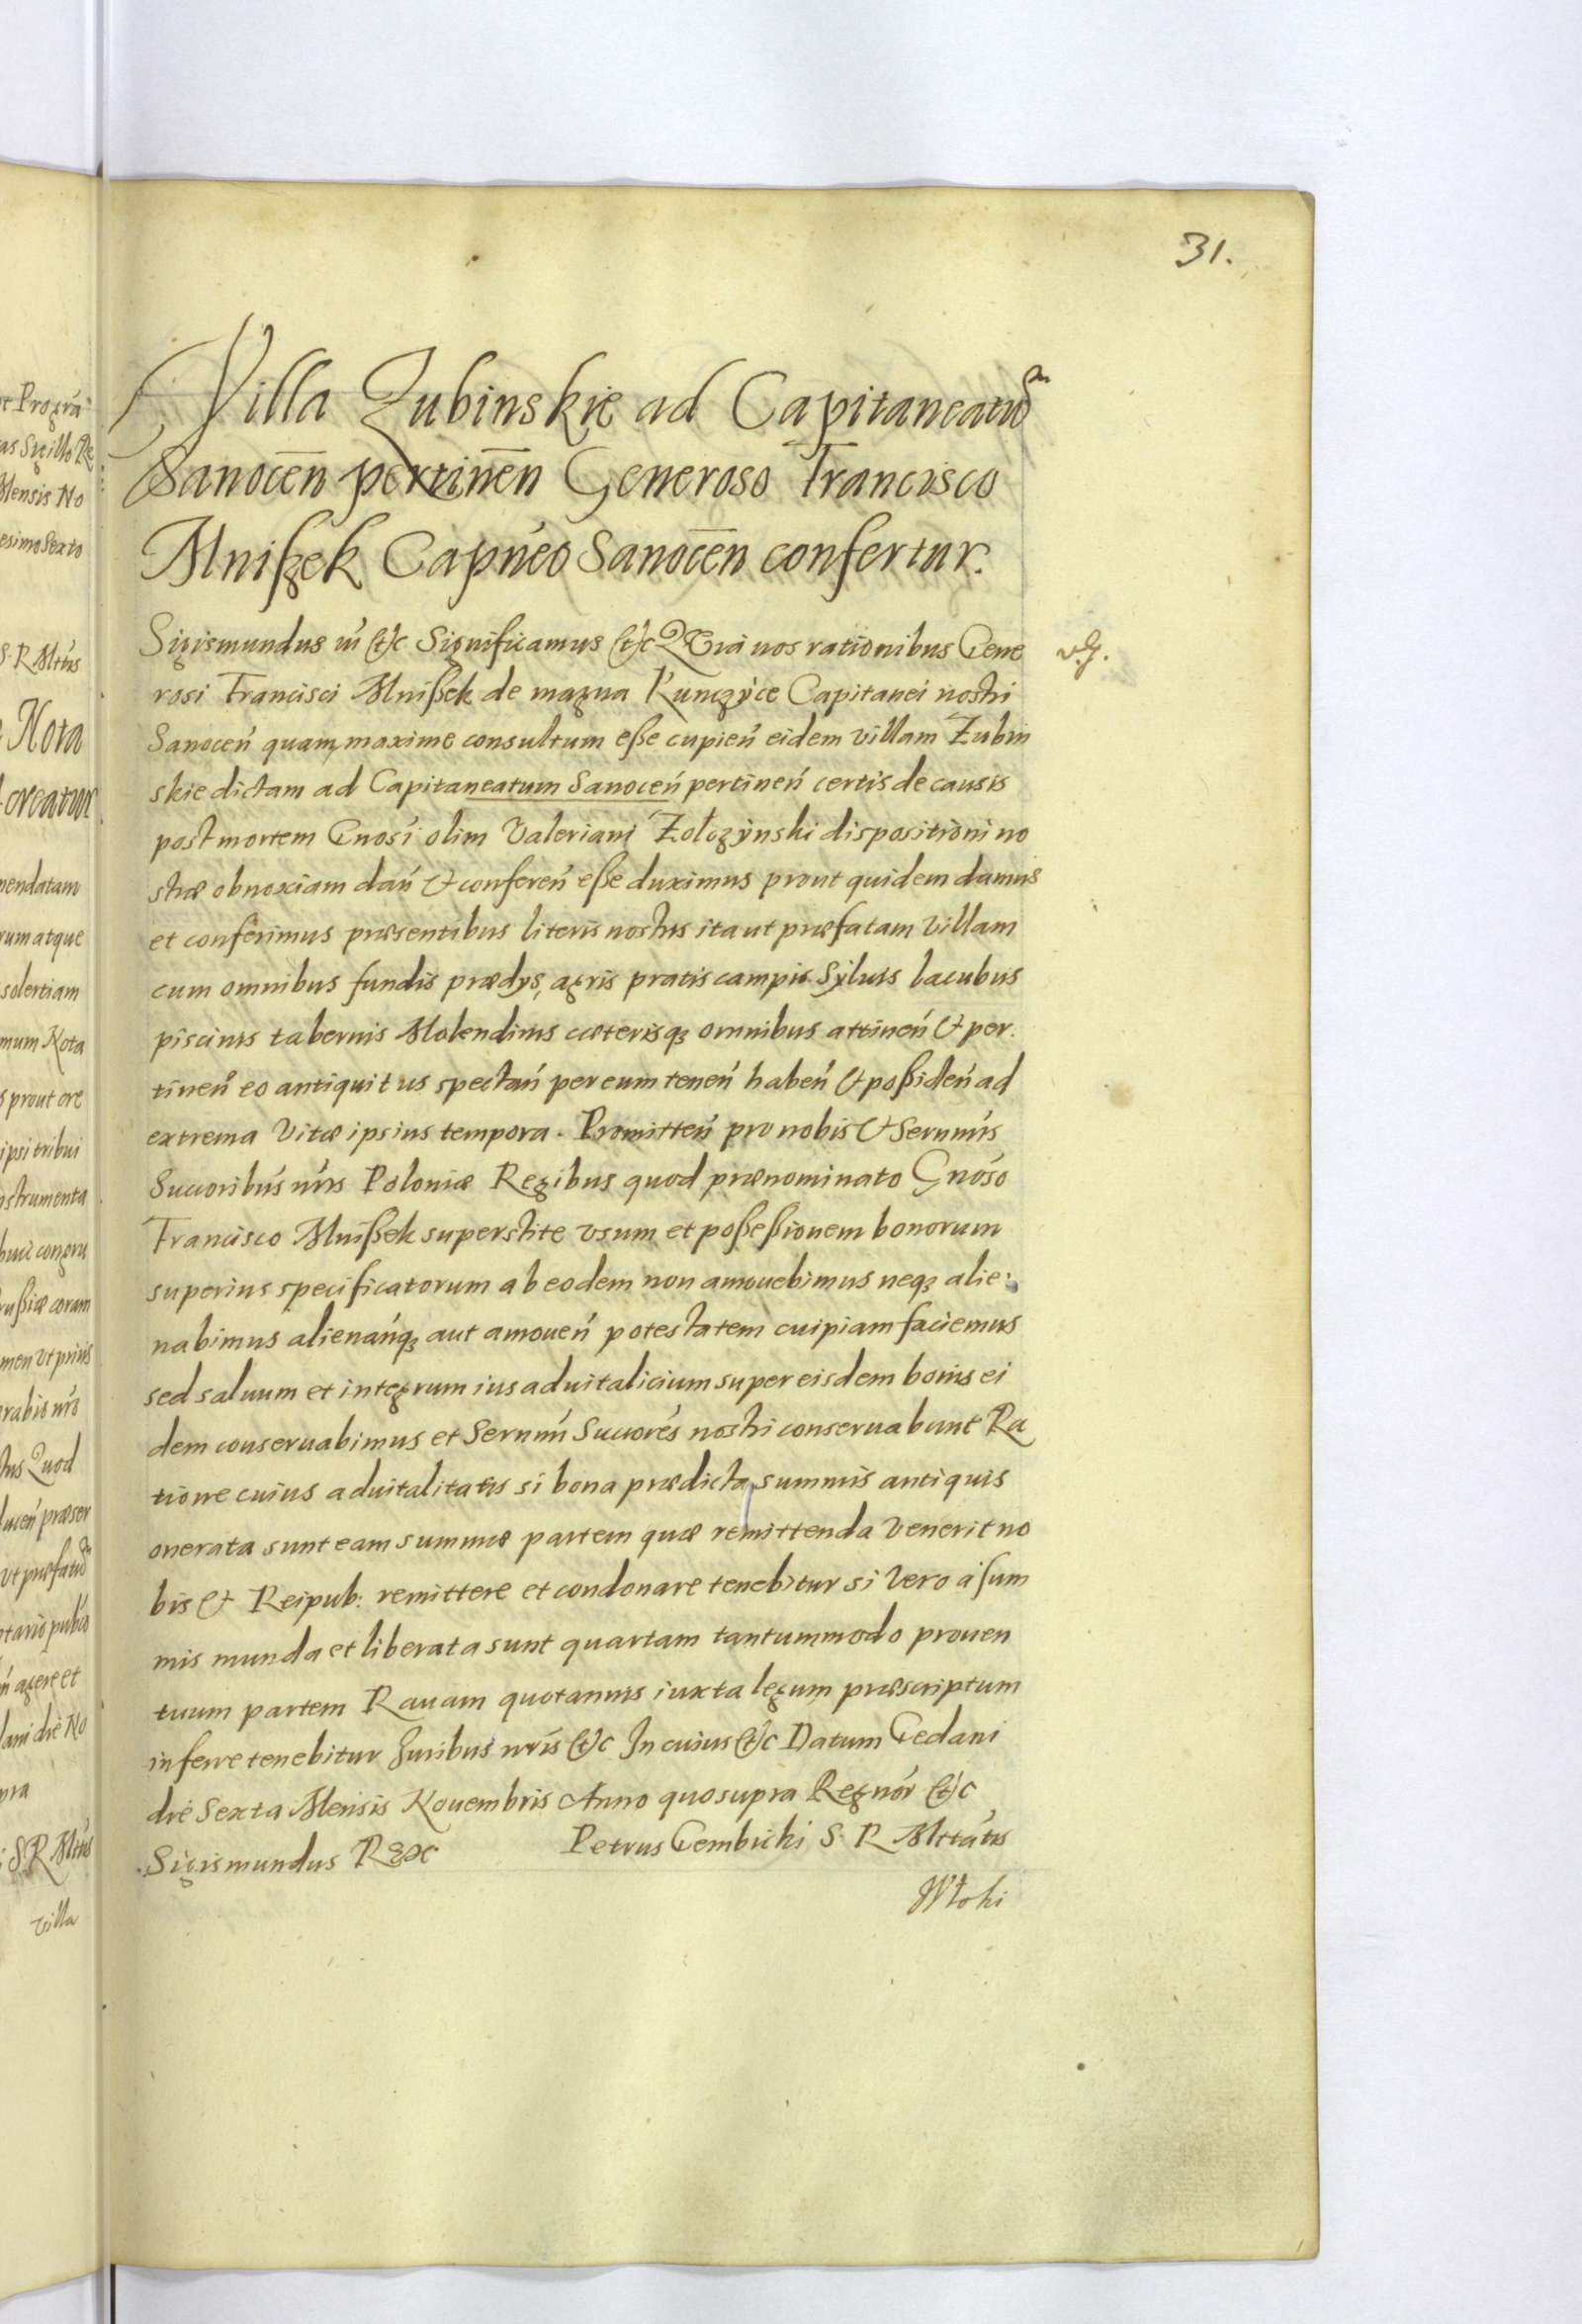 31.
Villa Zubinskie ad Capitaneatũ
Sanocen̄ pertinen̄ Generoso Francisco
Mnißek Capńeo Sanocen̄ confertur.
Sigismundus ııı́ &c Significamus &c Quia nos rationibus Gene
rosi Francisci Mnißek de magna Kunczÿce Capitanei nostri
Sanoceń quam maxime consultum eße cupień eidem villam Zubin
skie dictam ad Capitaneatum Sanoceń pertineń certis de causis
post mortem Gnosi olim Valeriani Żołczÿnski dispositioni no
stræ obnoxiam dań & confereń eße duximus prout quidem damus
et conferimus præsentibus literis nostris ita ut præfatam villam
cum omnibus fundis prædys, agris pratis campis Sÿluis lacubus
piscinis tabernis Molendinis cæterisq3 omnibus attineń & per.
tineń eo antiquitus spectań per eum teneń habeń & poßideń ad
extrema vitæ ipsius tempora. Promitteń pro nobis & Sernmı́s
Succoribús nr̃is Poloniæ Regibus quod prænominato Gnóso
Francisco Mnißek superstite vsum et poßeßionem bonorum
superius specificatorum ab eodem non amouebimus neq3 alie:
nabimus alienańq3 aut amoueń potestatem cuipiam faciemus
sed saluum et integrum ius aduitalicium super eisdem bonis ei
dem conseruabimus et Sernmı́ Succorés nostri conseruabunt Ra
tione cuius aduitalitatis si bona prædicta summis antiquis
onerata sunt eam summæ partem quæ remittenda venerit no
bis & Reipub: remittere et condonare tenebitur si vero à sum
mis munda et liberata sunt quartam tantummodo prouen
tuum partem Rauam quotannis iuxta legum præscriptum
inferre tenebitur Juribus nr̃is &c In cuius &c Datum Gedani
die Sexta Mensis Nouembris Anno quo supra Regnór &c
Sigismundus Rex Petrus Gembicki S. R Mttátis